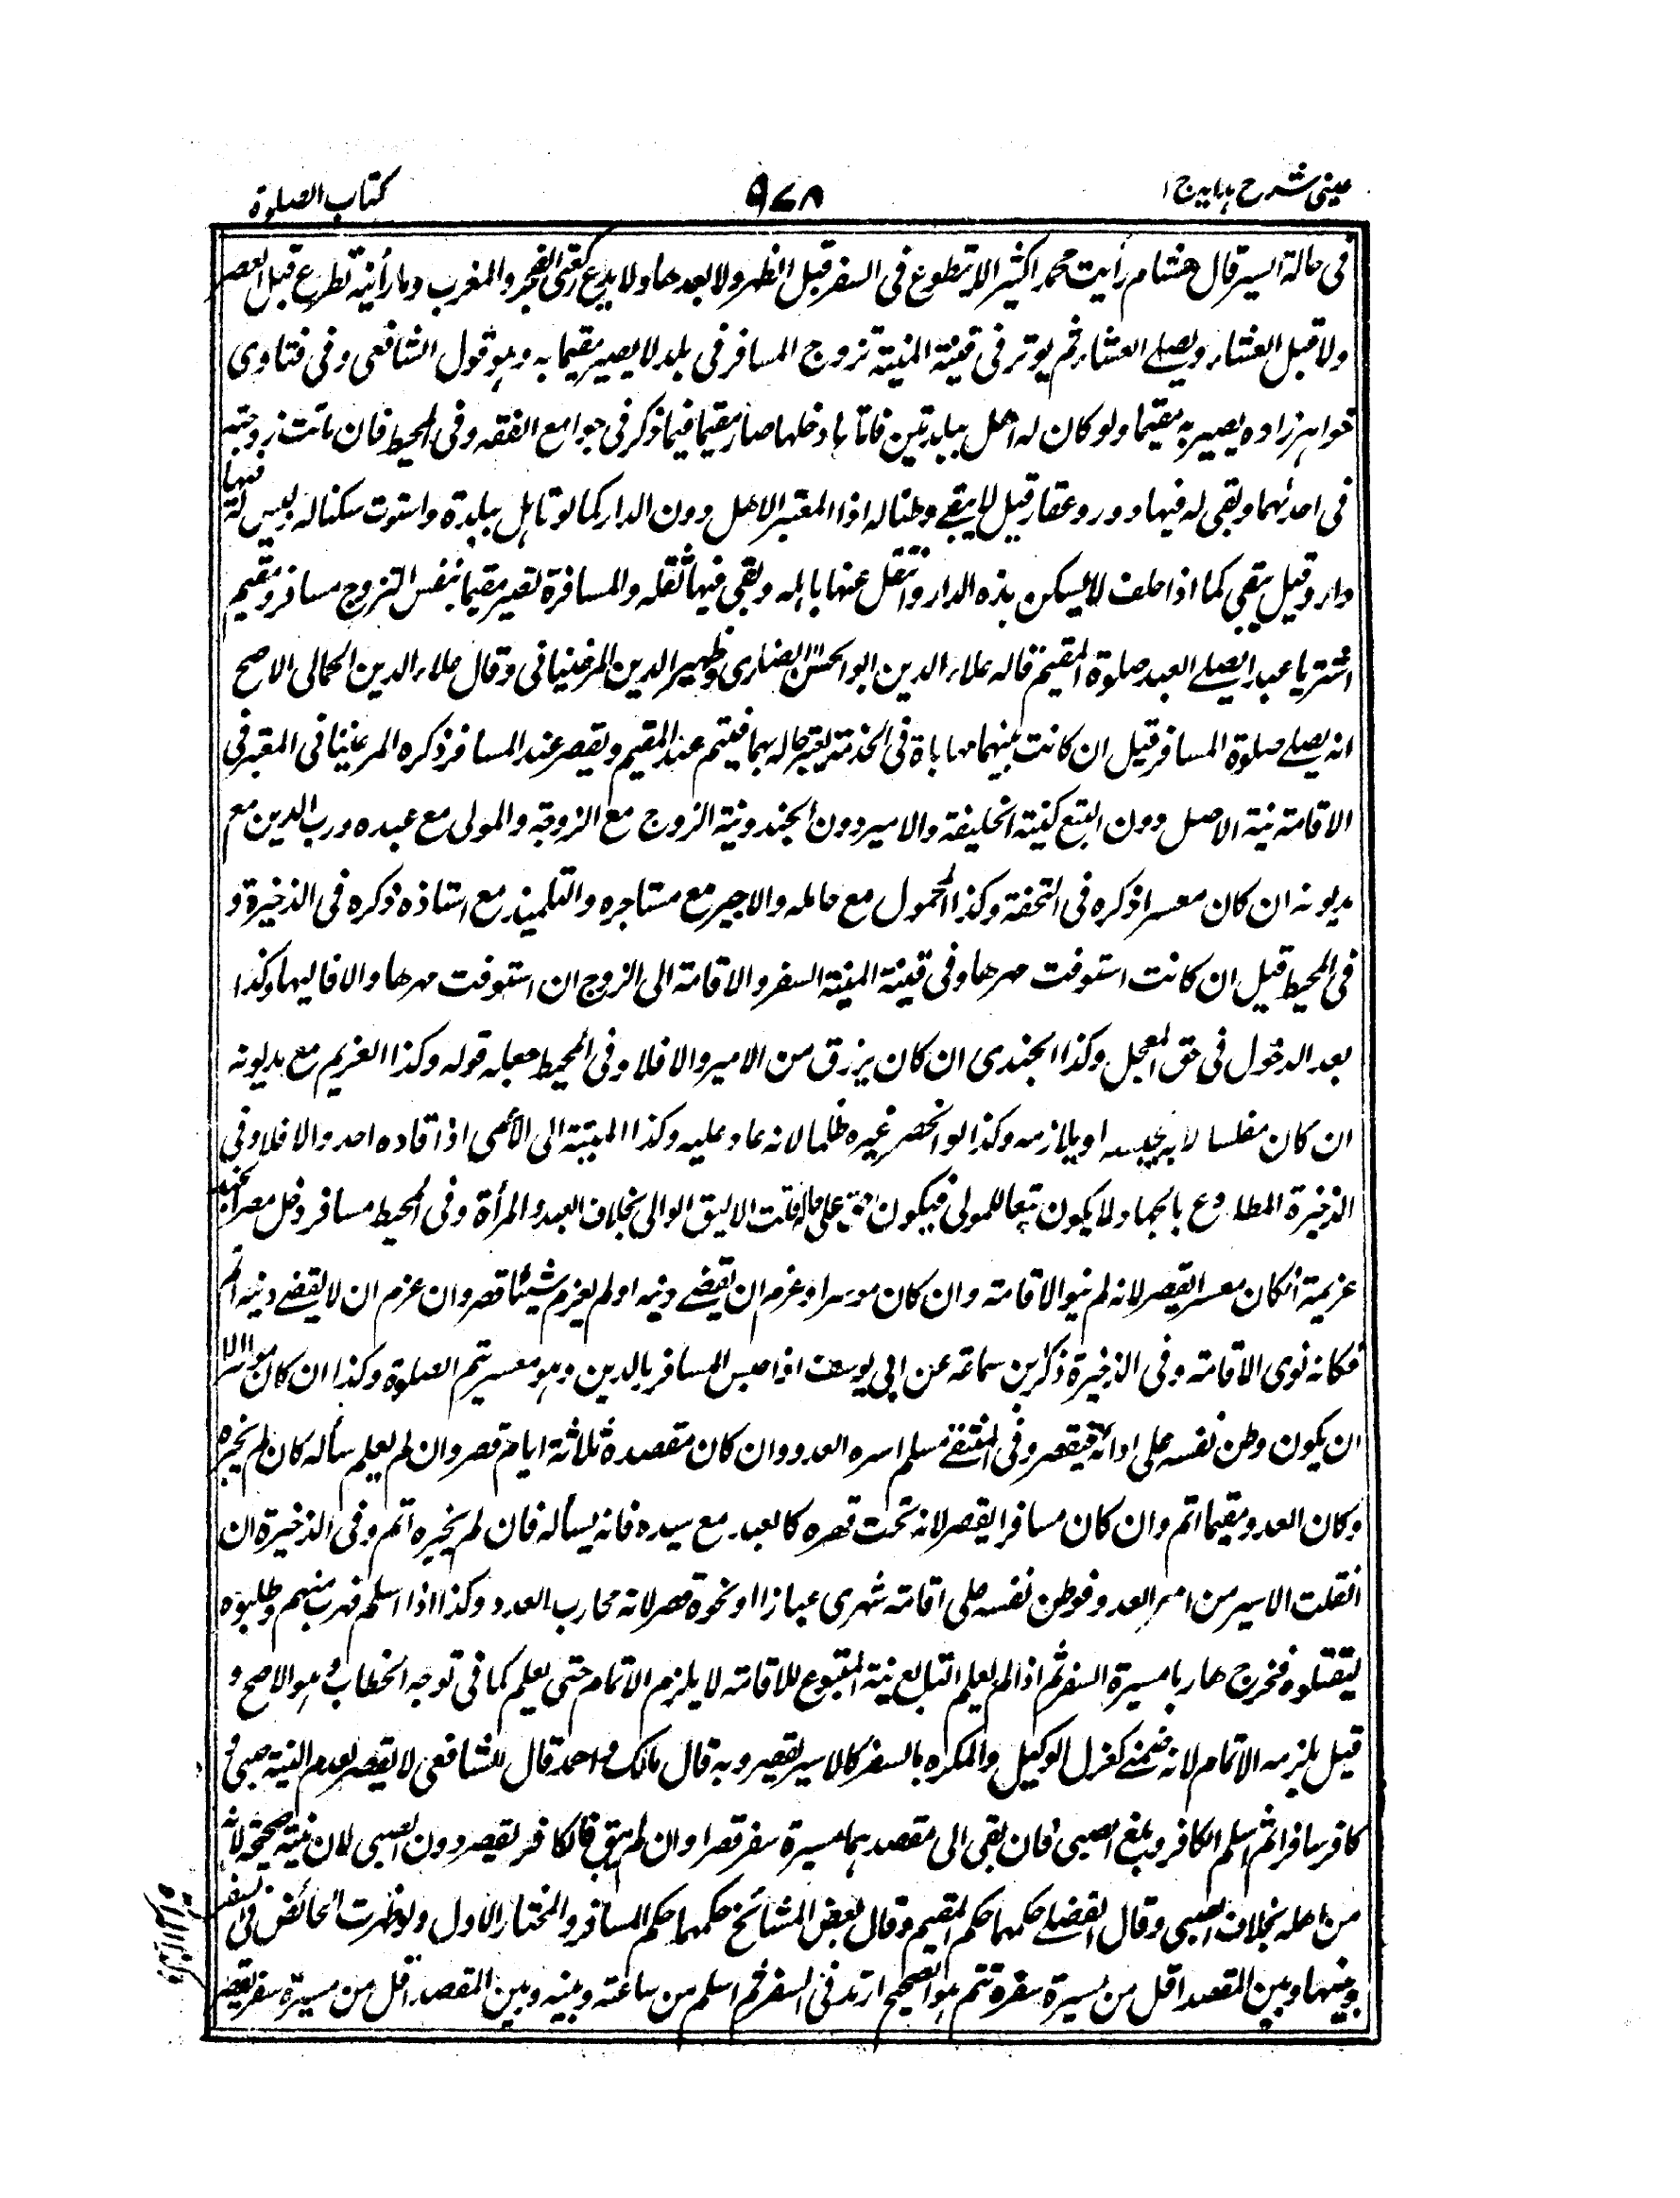 عینی شرح ہدایہ ج ۱
۹۷۸
کتاب الصلوة
فی حالة السیر قال هشام رأیت محمدا کثیرا لا یتطوع فی السفر قبل الظهر ولا بعدها ولا یدع رکعتی الفجر والمغرب وما رأیته تطوع قبل العصر
ولا قبل العشاء ویصلے العشاء ثم یوتر فی قینة المنیة تزوج المسافر فی بلد لا یصیر مقیما به وہو قول الشافعی وفی فتاوی
خواہرزاده یصیر به مقیما ولو کان له اهل ببلدتین فایتاہا دخلها صار مقیما فیما ذکر فی جوامع الفقه وفی المحیط فان ماتت زوجته
فی احدٰہما وبقی له فیها دور وعقار قیل لا یبقے وطنا له اذا المعتبر الاهل دون الدار کما لو تاہل ببلدة واستوت سکنا له ولیس له فیها
دار وقیل یبقی کما اذا حلف لا یسکن ہذه الدار وانتقل عنها باہله وبقی فیها ثقله والمسافرة تصیر مقیما بنفس التزوج مسافر ومقیم
اشتریا عبدا یصلے العبد صلوة المقیم قاله علاء الدین ابو الحسن الضاری وظهیر الدین المرغینانی وقال علاء الدین الحمالی الاصح
انه یصلے صلوة المسافر قیل ان کانت بینهما مهایاة فی الخدمة یعتبر حاله بهما فیتم عند المقیم ویقصر عند المسافر ذکره المرغینانی المعتبر فی
الاقامة نیة الاصل دون التبع کنیة الخلیفة والامیر دون الجند ونیة الزوج مع الزوجة والمولی مع عبده ورب الدین مع
مدیونه ان کان معسرا ذکره فی التحفة وکذا المحمول مع حامله والاجیر مع مستاجره والتلمیذ مع استاذه ذکره فی الذخیرة و
فی المحیط قیل ان کانت استوفت مهرها وفی قینة المنیة السفر والاقامة الی الزوج ان استوفت مهرها والا فالیها وکذا
بعد الدخول فی حق المعجل وکذا الجندی ان کان یرزق من الامیر والا فلا وفی المحیط معبله قوله وکذا الغریم مع مدیونه
ان کان مفلسا لا به یحبسه او یلازمه وکذا لو انحصر غیره ظلما لانه عاد علیه وکذا المبیتة الی الأعمی اذا قاده احد والا فلا وفی
الذخیرة المطلاوع بالجهاد لا یکون تبعا للمولی فیکون علی حاله قلت الالیق الوالی بخلاف العبد والمرأة وفی المحیط مسافر دخل مصر
عزیمة انکان معسرا یقصر لانه لم ینو الاقامة وان کان موسرا وعزم ان یقضے دینه او لم یعزم شیئا قصر وان عزم ان لا یقضے دینه اتم
فکانه نوی الاقامة وفی الذخیرة ذکر ابن سماعة عن ابی یوسف اذا حبس المسافر بالدین وہو معسر یتم الصلوة وکذا ان کان موسرا الا
ان یکون وطن نفسه علی ادائه فیقصر وفی المنتقے مسلم اسره العدو وان کان مقصده ثلاثة ایام قصر وان لم یعلم سأله کان لم یخبره
وکان العدو مقیما اتم وان کان مسافرا یقصر لانه تحت قهره کالعبد مع سیده فانه یسأله فان لم یخبره اتم وفی الذخیرة ان
انفلت الاسیر من اسر العدو فوطن نفسه علی اقامة شهر ی عبازا او نحوة قصر لانه محارب العدو وکذا اذا اسلم فهرب منهم وطلبوه
لیقتلوه فخرج هاربا مسیرة السفر ثم اذا لم یعلم التابع نیة المتبوع للاقامة لا یلزم الاتمام حتی یعلم کما فی توجه الخطاب وہو الاصح و
قیل یلزمه الاتمام لانه ضمنے کعزل الوکیل والمکره بالسفر کالاسیر یقصر وبه قال مالک واحمد قال للشافعی لا یقصر لعدم النیة صبی و
کافر سافرا ثم اسلم الکافر وبلغ الصبی فان بقی الی مقصدہما مسیرة سفر قصرا وان لم یبق فالکافر یقصر دون الصبی لان نیته صحیحة لانه
من اهله بخلاف الصبی وقال الفضلے حکمهما حکم المقیم وقال بعض المشائخ حکمهما حکم المسافر والمختار الاول ولو طهرت الحائض فی السفر
وبینها وبین المقصد اقل من مسیرة سفرة تتم ہو الصحیح ارتد فی السفر ثم اسلم من ساعته وبینه وبین المقصد اقل من مسیرة سفر یقصر